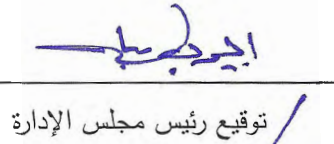 توقيع رئيس مجلس الإدارة